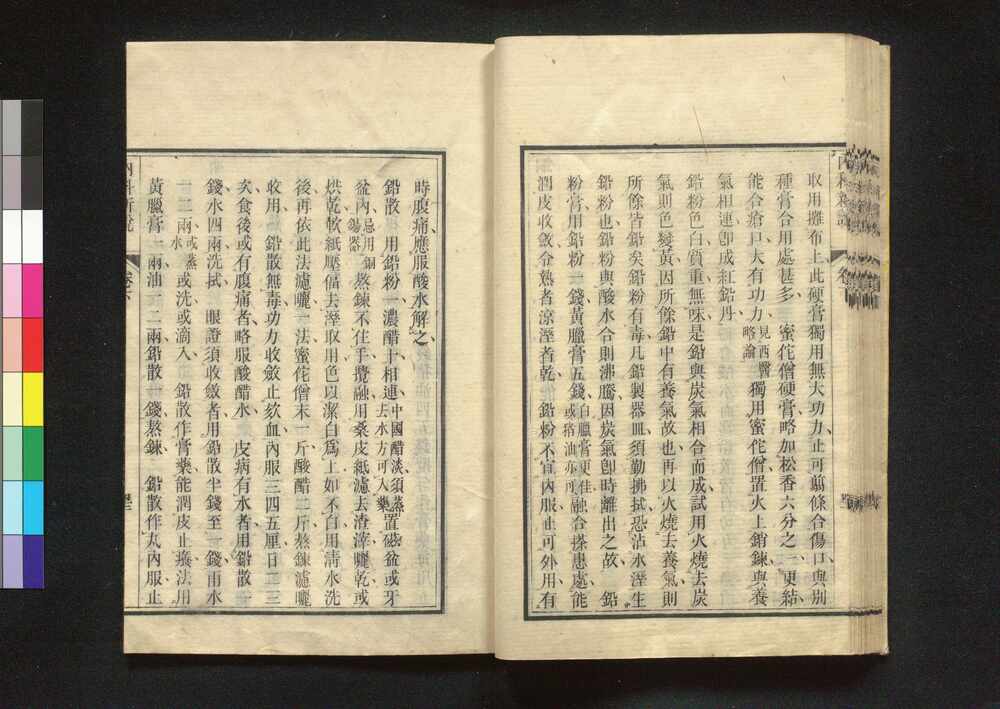 取用攤布上此硬膏獨用無大功力止可剪條合傷口與别
種膏合用處甚多　蜜佗僧硬膏略加松香六分之一更結
能合瘡口大有功力見西醫略論　獨用蜜佗僧置火上銷鍊與養
氣相連卽成紅鉛丹
鉛粉色白質重無味是鉛與炭氣相合而成試用火燒去炭
氣則色變黃因所餘鉛中有養氣故也再以火燒去養氣則
所餘皆鉛矣鉛粉有毒凡鉛製器皿須勤拂拭恐沾水溼生
鉛粉也鉛粉與酸水合則沸騰因炭氣卽時離出之故　鉛
粉膏用鉛粉一錢黃臘膏五錢白臘膏更佳或猪油亦可融合搽患處能
潤皮收斂令熟者涼溼者乾　鉛粉不宜內服止可外用有
時腹痛應服酸水解之
鉛散　用鉛粉一濃醋十相連中國醋淡須蒸去水方可入藥置磁盆或牙
盆內忌用銅錫器熬鍊不住手攪融用桑皮紙濾去渣滓曬乾或
烘乾軟紙壓偪去溼取用色以潔白爲上如不白用清水洗
後再依此法濾曬一法蜜佗僧末一斤酸醋二斤熬鍊濾曬
收用　鉛散無毒功力收斂止欬血內服三四五厘日二三
次食後或有腹痛者略服酸醋水　皮病有水者用鉛散一
錢水四兩洗拭　眼證須收斂者用鉛散半錢至一錢雨水
十二兩或蒸水或洗或滴入　鉛散作膏藥能潤皮止癢法用
黃臘膏一兩油一二兩鉛散一錢熬鍊　鉛散作丸內服止